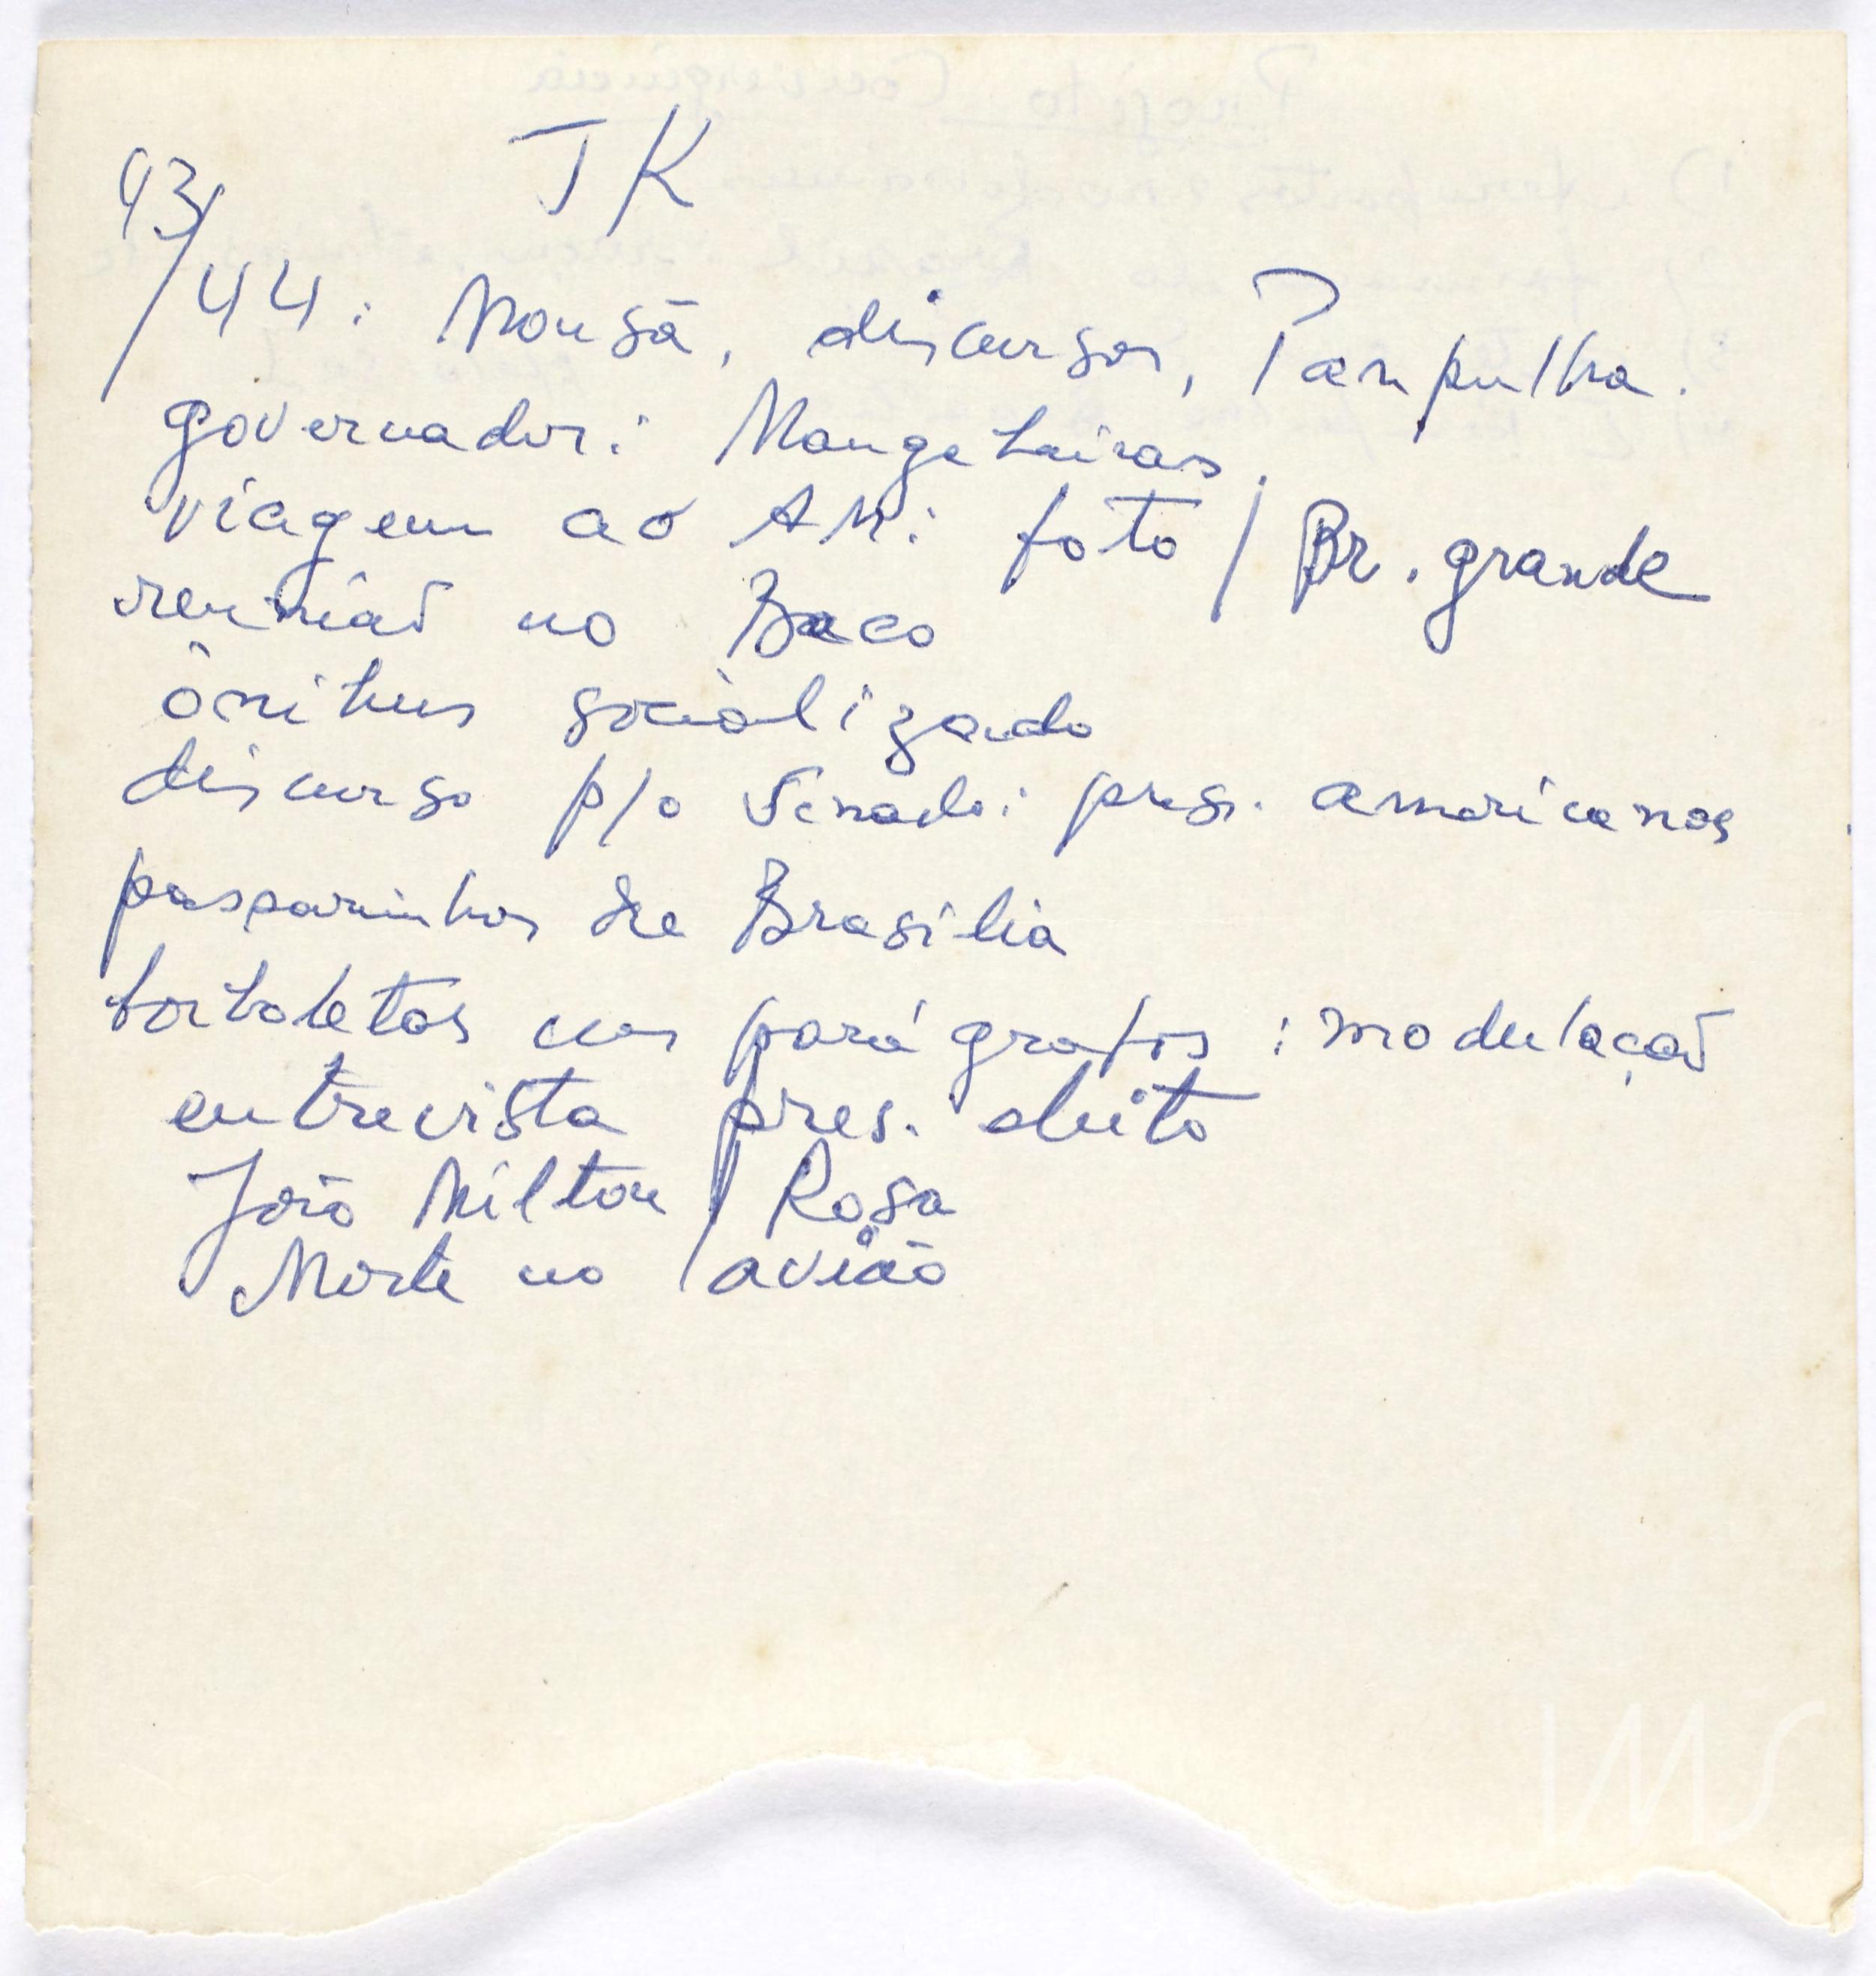 JK
43/
/44: Monsã, discursos, Pampulha.
governador: Mangabeiras,
viagem ao AM: foto / Br. grande
reunião no Baco
ônibus socializado
discurso p/o Senado: pres. americanos
passarinhos de Brasília
borboletas nos parágrafos: modulação
entrevista pres. eleito
João Milton / Rosa
Morte no avião
IMS